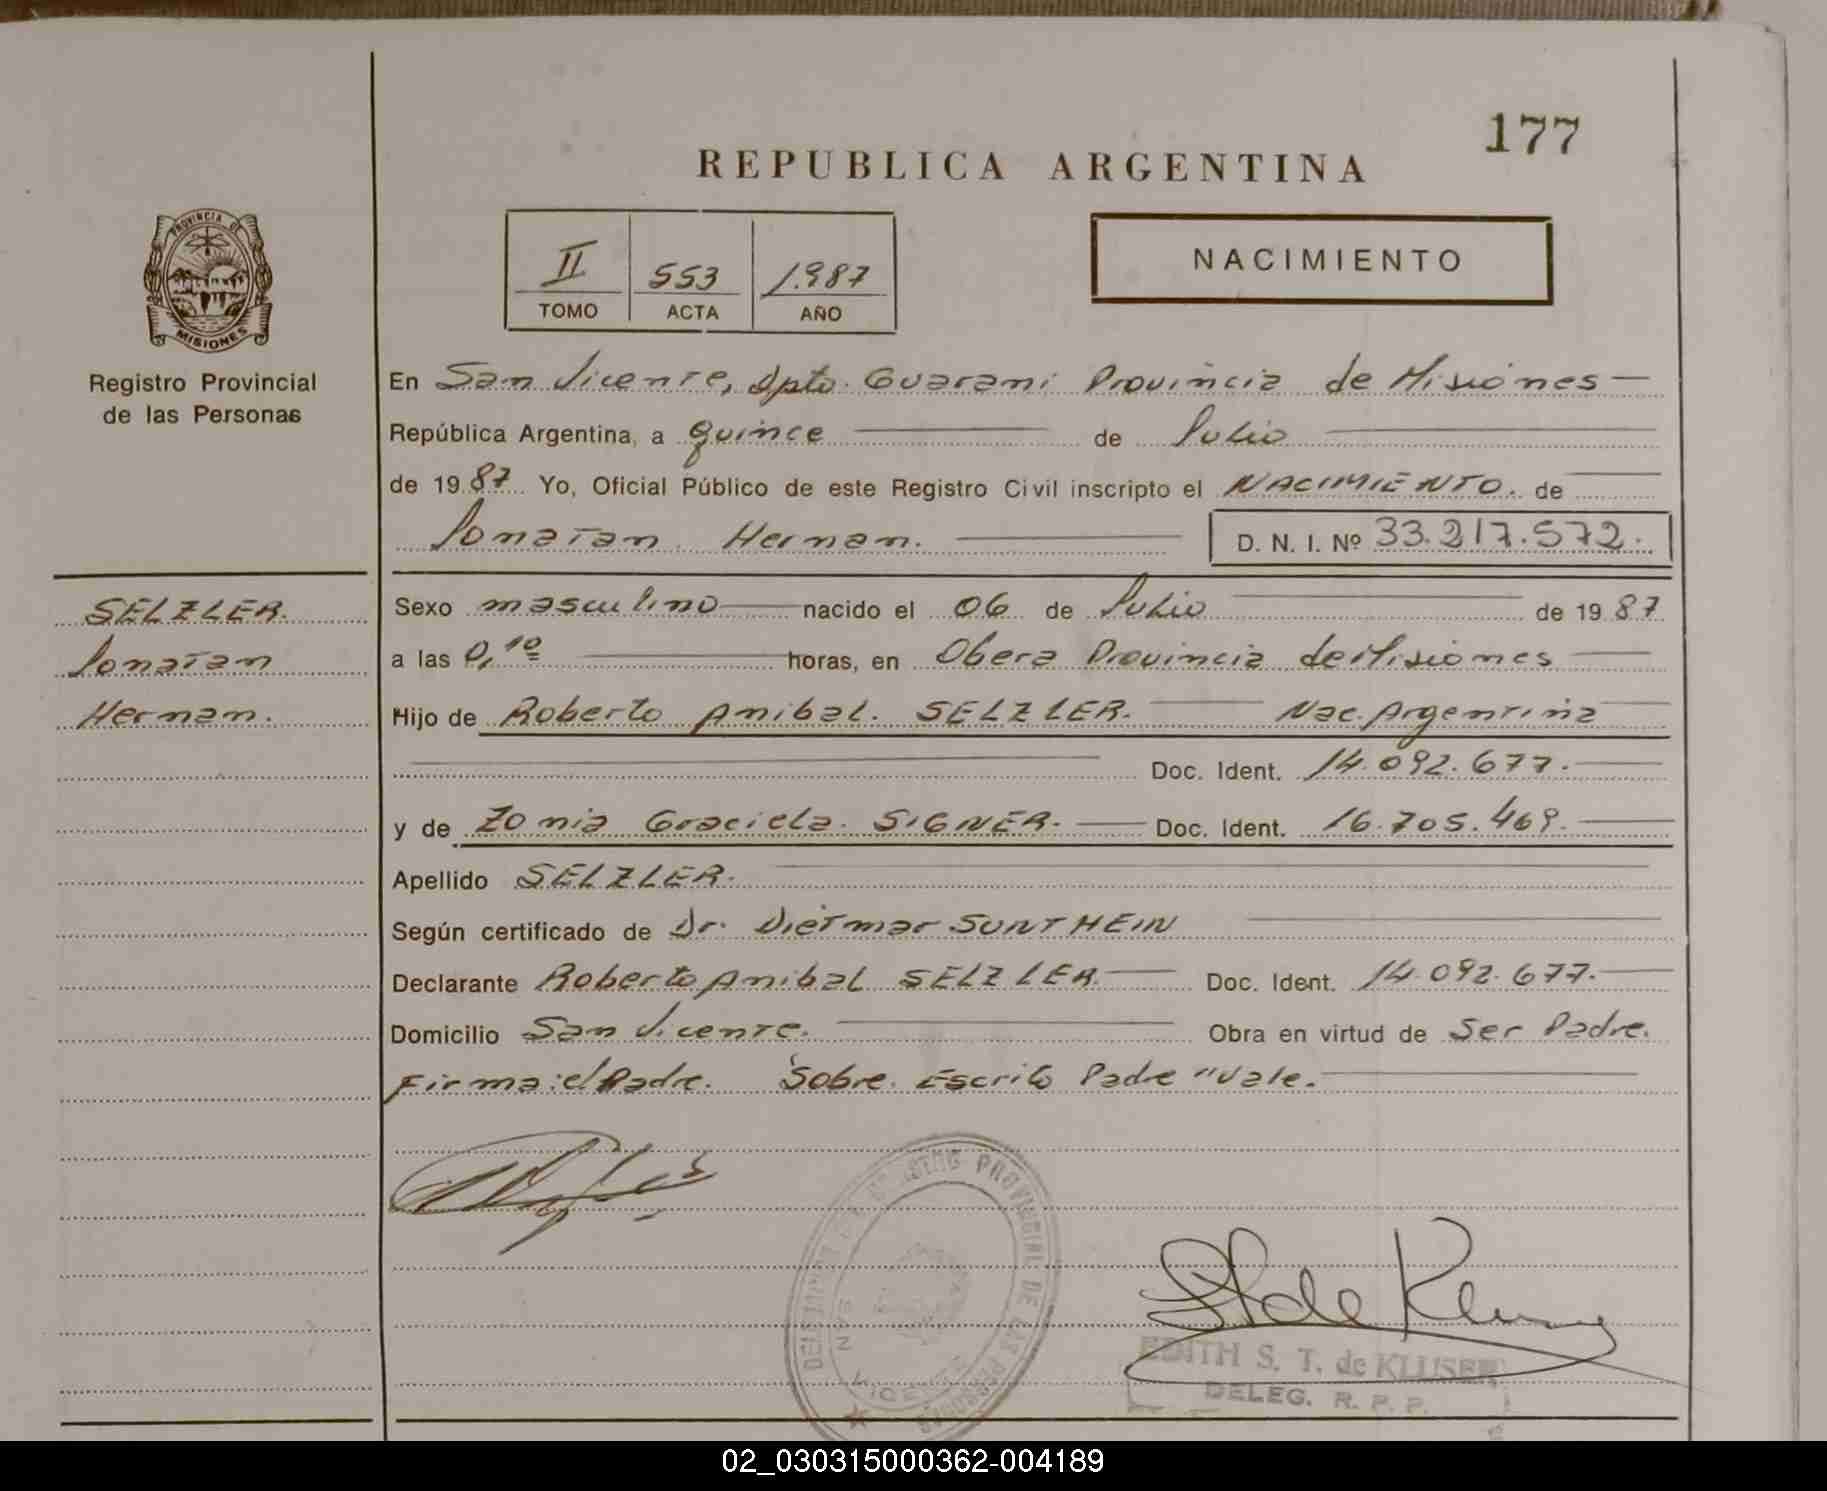 177
REPUBLICA ARGENTINA
PROVINCIA DE
MISIONES
Registro Provincial
de las Personas
II 553 1.987
TOMO ACTA AÑO
NACIMIENTO
En San Vicente, Dpto. Guarani Provincia de Misiones
República Argentina, a Quince de Julio
de 1987 Yo, Oficial Público de este Registro Civil inscripto el NACIMIENTO. de
Jonatan Hernan. D. N. I. Nº 33.217.572.
SELZLER.
Jonatan
Hernan.
Sexo masculino nacido el 06 de Julio de 1987
a las 0,10 horas, en Obera Provincia de Misiones
Hijo de Roberto Anibal. SELZLER. Nac. Argentina
Doc. Ident. 14.092.677.
y de Zonia Graciela. SIGNER. Doc. Ident. 16.705.469.
Apellido SELZLER.
Según certificado de Dr. Dietmar SUNTHEIN
Declarante Roberto Anibal SELZLER. Doc. Ident. 14.092.677.
Domicilio San Vicente. Obra en virtud de Ser Padre.
Firma: el Padre. Sobre Escrito Padre "Vale.
PROVINCIAL DE LAS PERSONAS
SAN VICENTE
EDITH S. T. de KLUSER
DELEG. R. P. P.
02_030315000362-004189